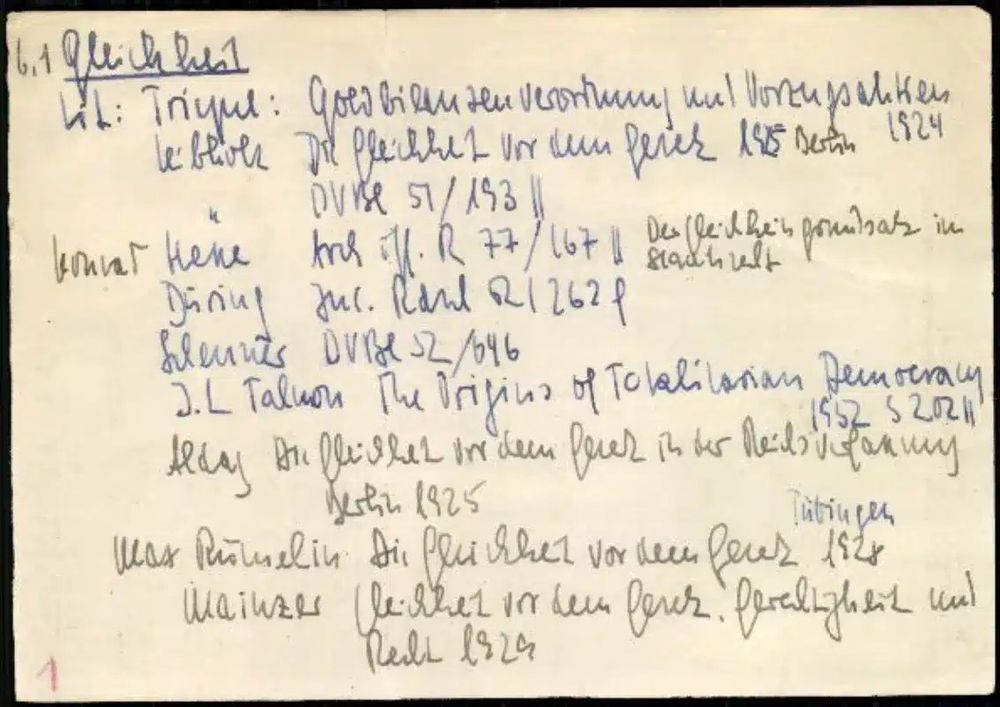 6,1 Gleichheit
Lit: Triepel: Goldbilanzenverordnung und Vorzugsaktien 1924
Leibholz Die Gleichheit vor dem Gesetz 1925 Berlin
" DVBl 51/193 ff
Konrad Hesse Arch öff. R 77/167 ff Der Gleichheitsgrundsatz im
Staatsrecht
Dürig Jur. Rdsch 52/262 f
DVBl 52/646
J.L Talmon The Origins of Totalitarian Democracy
1952 S 202 ff
Aldag Die Gleichheit vor dem Gesetz in der Reichsverfassung
Berlin 1925
Max Rümelin Die Gleichheit vor dem Gesetz Tübingen 1928
Mainzer Gleichheit vor dem Gesetz, Gerechtigkeit und
Recht 1929
1